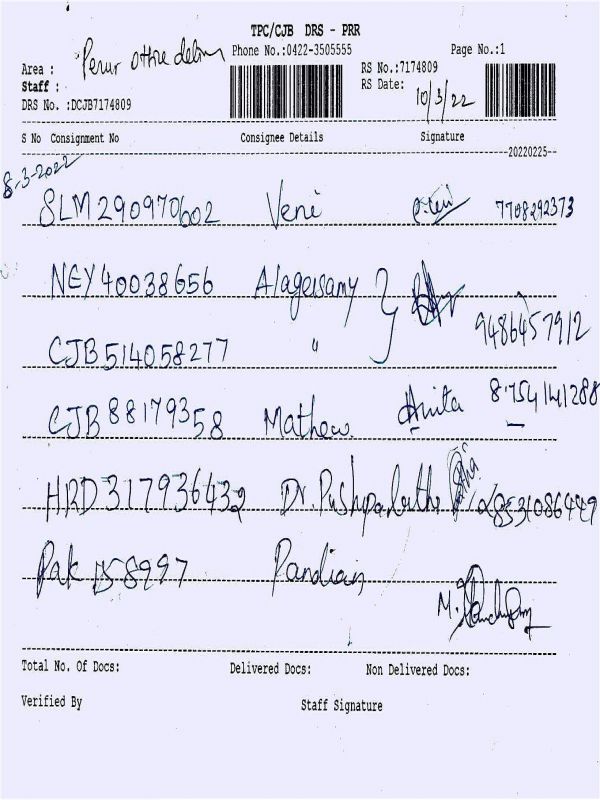 TPC/CJB DRS - PRR
Phone No.:0422-3505555 Page No.:1
Area : Perur office
Staff :
RS No.:7174809
RS Date: 10/3/22
DRS No. :DCJB7174809
S No Consignment No Consignee Details Signature
--20220225--
8-3-2022
SLM290970602 Veni 7708292373
NEY40038656 Alagersamy
CJB514058277 " 9486457912
CJB88179358 Mathew Anita 8754141288
HRD317936432 Dr. 8531086449
Pak 158997 Pandian
M.
Total No. Of Docs: Delivered Docs: Non Delivered Docs:
Verified By Staff Signature